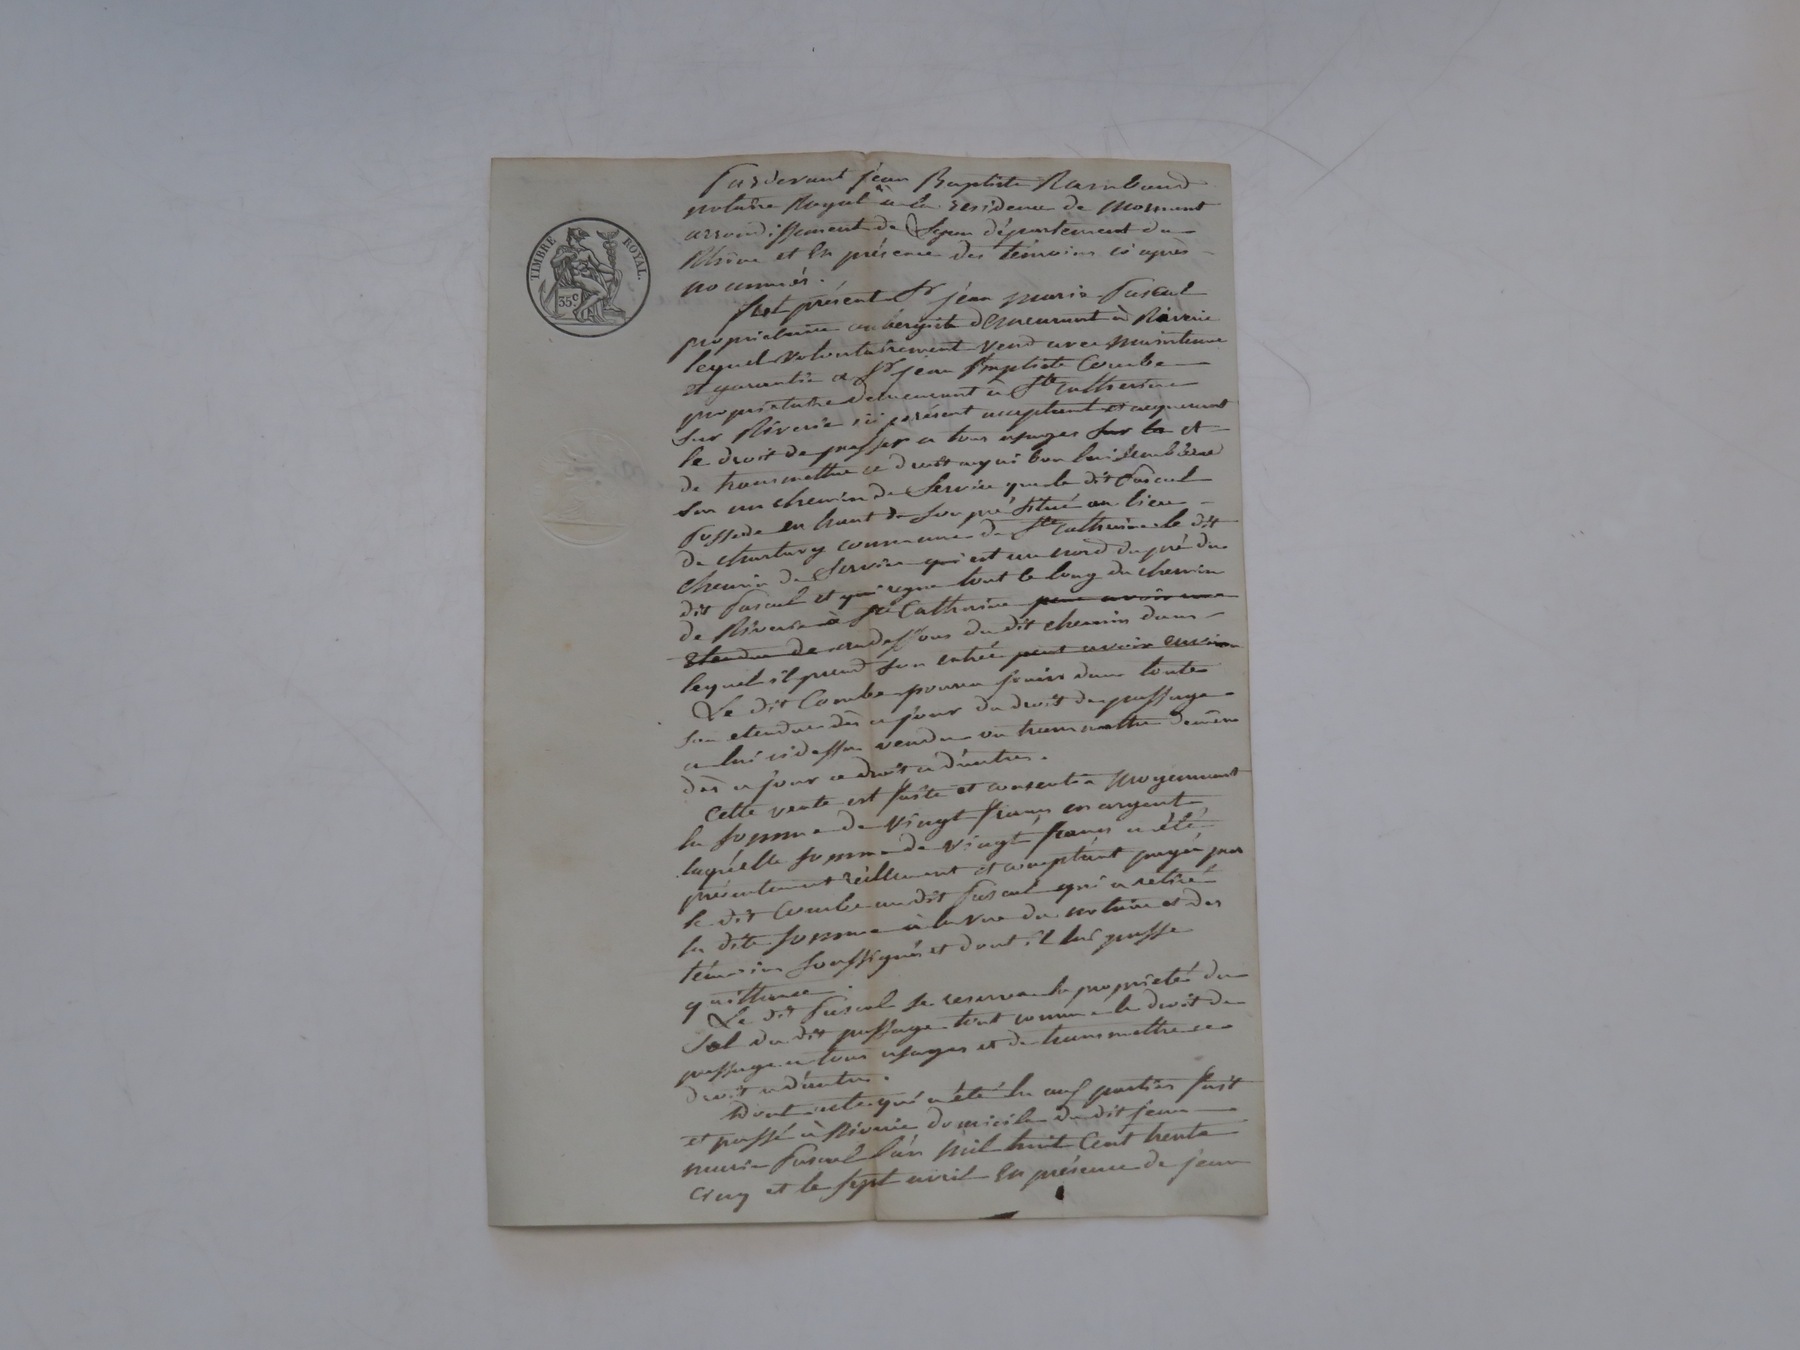 TIMBRE ROYAL.
35c
Pardevant jéan Baptiste Rambaud
notaire Royal à la résidence de Mornant
arrondissement de Lyon département du
Rhône et En présence des témoins ci après
nommés.
Est présent Sr jéan marie Pascal
propriétaire aubergiste demeurant à Riverie
lequel volontairement vend avec maintenue
et garantie a Sr jean Baptiste Combe
propriétaire demeurant à Ste Catherine
sur Riverie ici présent acceptant et acquerant
le droit de passer a tous usages sur la et
de transmettre ce droit a qui bon lui semblera
sur un chemin de Service que le dit Pascal
possede en haut de son pré situé au lieu
de commune de Ste Catherine le dit
chemin de Service qui est au nord du pré du
dit Pascal et qui regne tout le long du chemin
de Riverie à Ste Catherine peut avoir une
Etendue de au dessous du dit chemin dans
lequel il prend son entrée peut avoir environ
Le dit Combe pourra jouir dans toute
son etendue dès ce jour du droit de passage
a lui ci dessus vendu ou transmettre de même
dès ce jour ce droit a d'autres.
Cette vente est faite et consentie moyennant
la somme de vingt francs en argent
laquelle somme de vingt francs a été
présentement réellement et comptant payée par
le dit Combe au dit Pascal qui a retiré
la dite somme à la vue du notaire et des
témoins soussignés et dont il lui passe
quittance.
Le dit Pascal se reserve la propriété du
sol du dit passage tout comme le droit de
passage a tous usages et de transmettre ce
droit a d'autres.
Dont acte qui a été lu aux parties fait
et passé à Riverie domicile du dit jean
marie Pascal l'an mil huit Cent trente
cinq et le sept avril En présence de jean